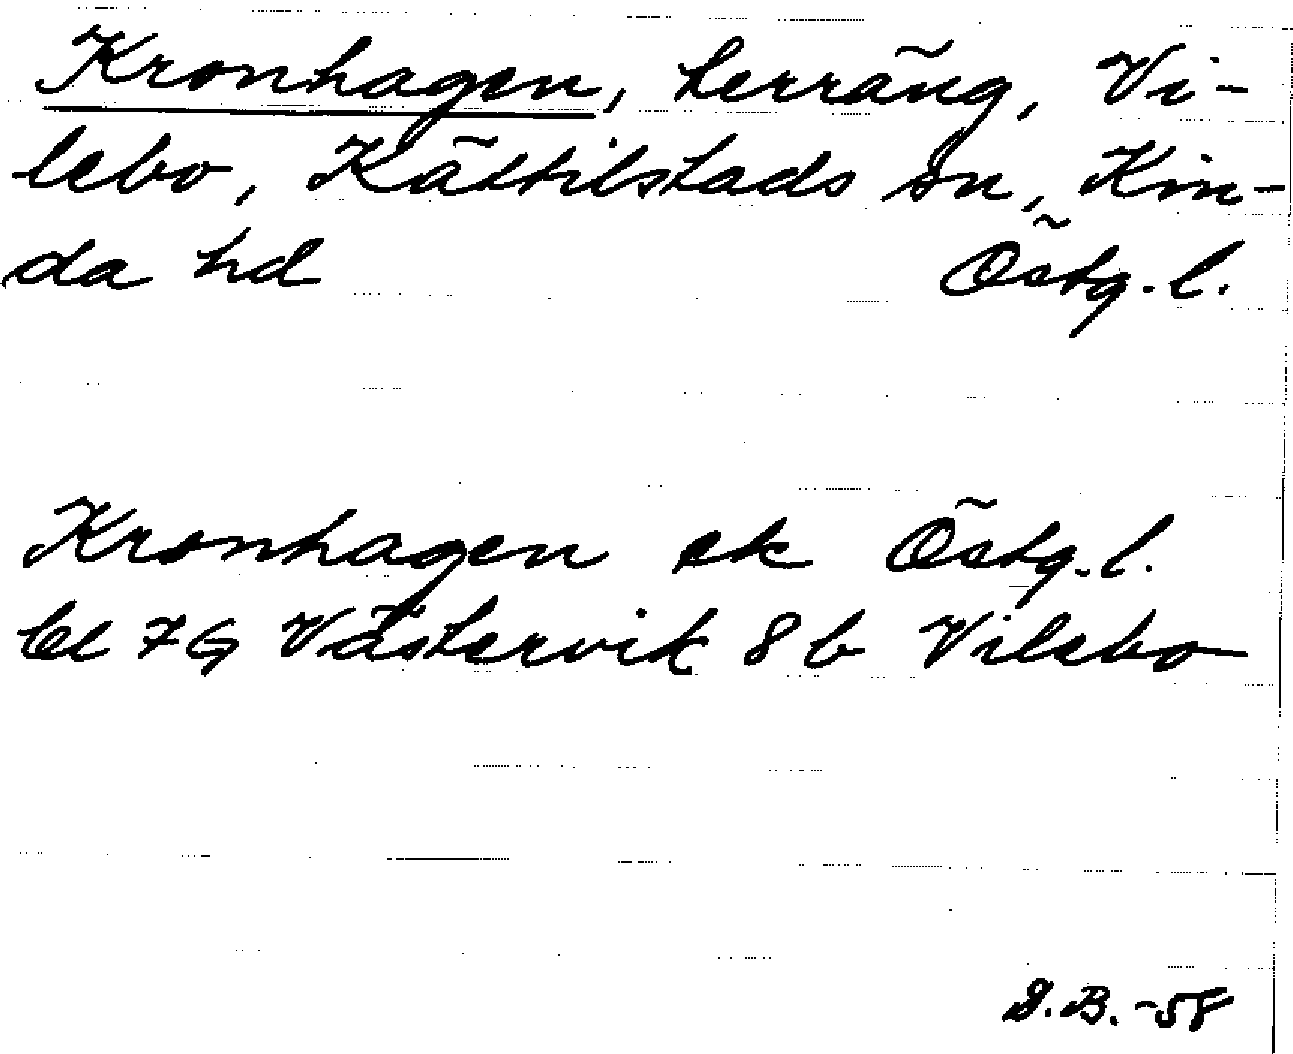 Kronhagen, terräng, Vi-
lebo, Kättilstads sn, Kin-
da hd Östg. l.
Kronhagen ek Östg. l.
bl 7G Västervik 8 b Vilebo
D.B. -58